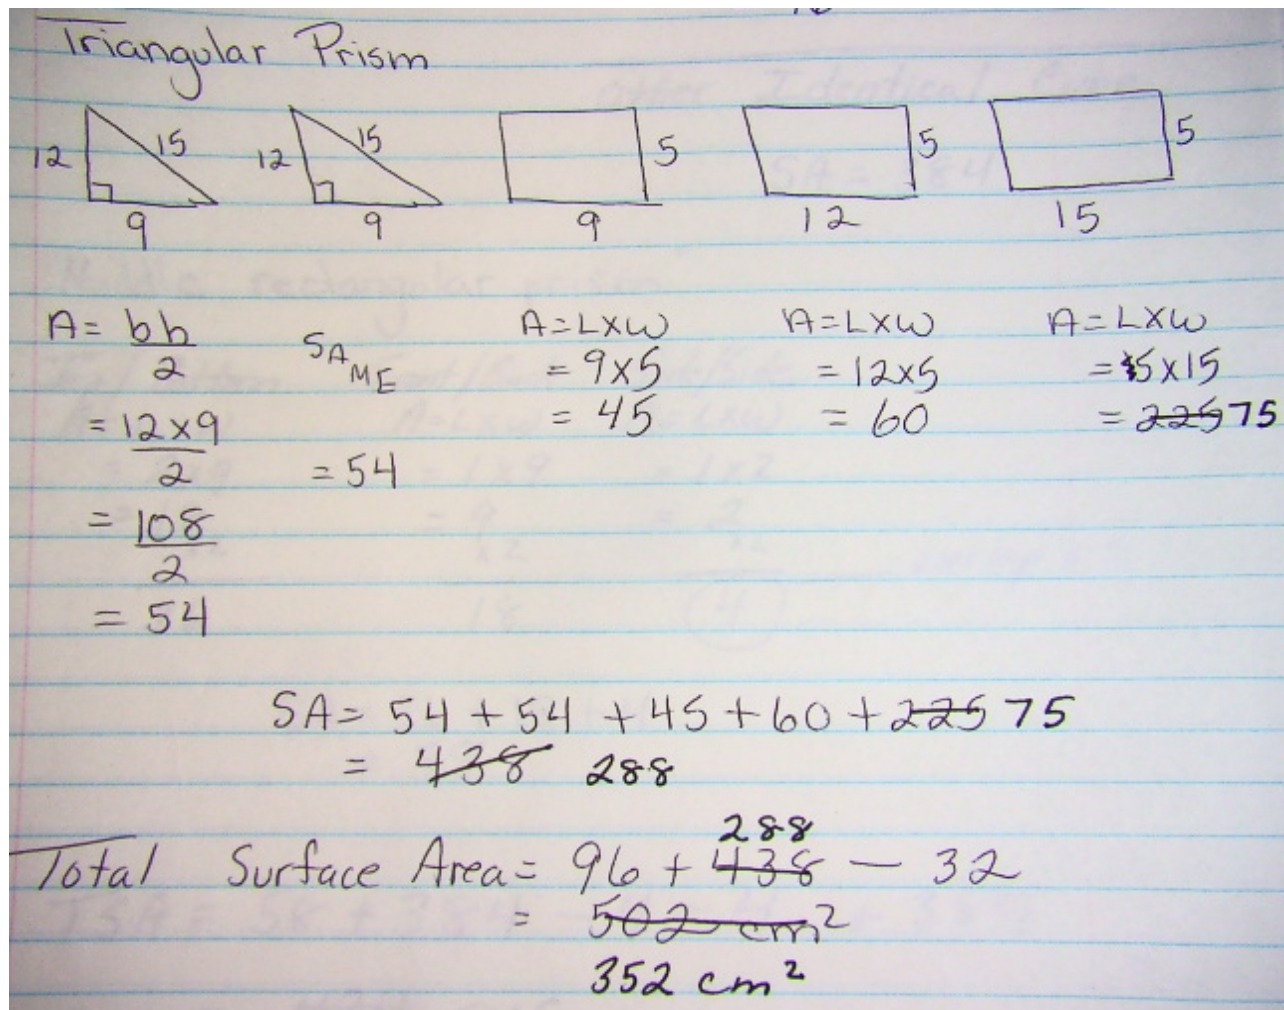 Triangular Prism
12 15 9
12 15 9
5 9
5 12
5 15
A = bh/2
= 12x9/2
= 108/2
= 54
SAME
= 54
A = LXW
= 9x5
= 45
A = LXW
= 12x5
= 60
A = LXW
= 5x15
= 225 75
SA = 54 + 54 + 45 + 60 + 225 75
= 438 288
288
Total Surface Area = 96 + 438 - 32
= 502 cm²
352 cm²